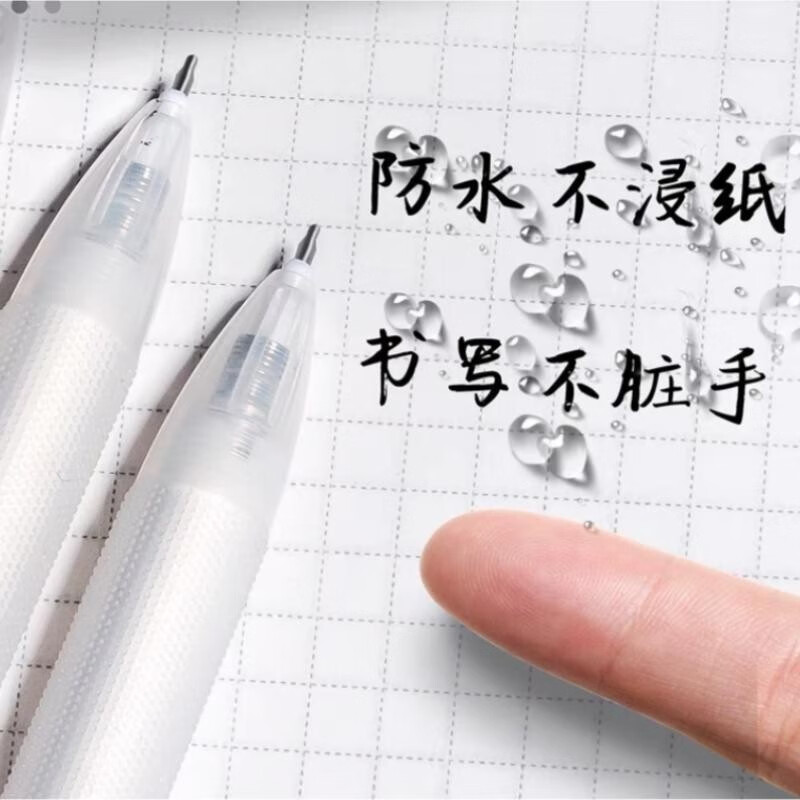 防水不浸纸
书写不脏手